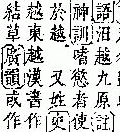 語汨越九原註
神訓嗜慾若使
於越又姓
越東越漢書作
結草廣韻或作